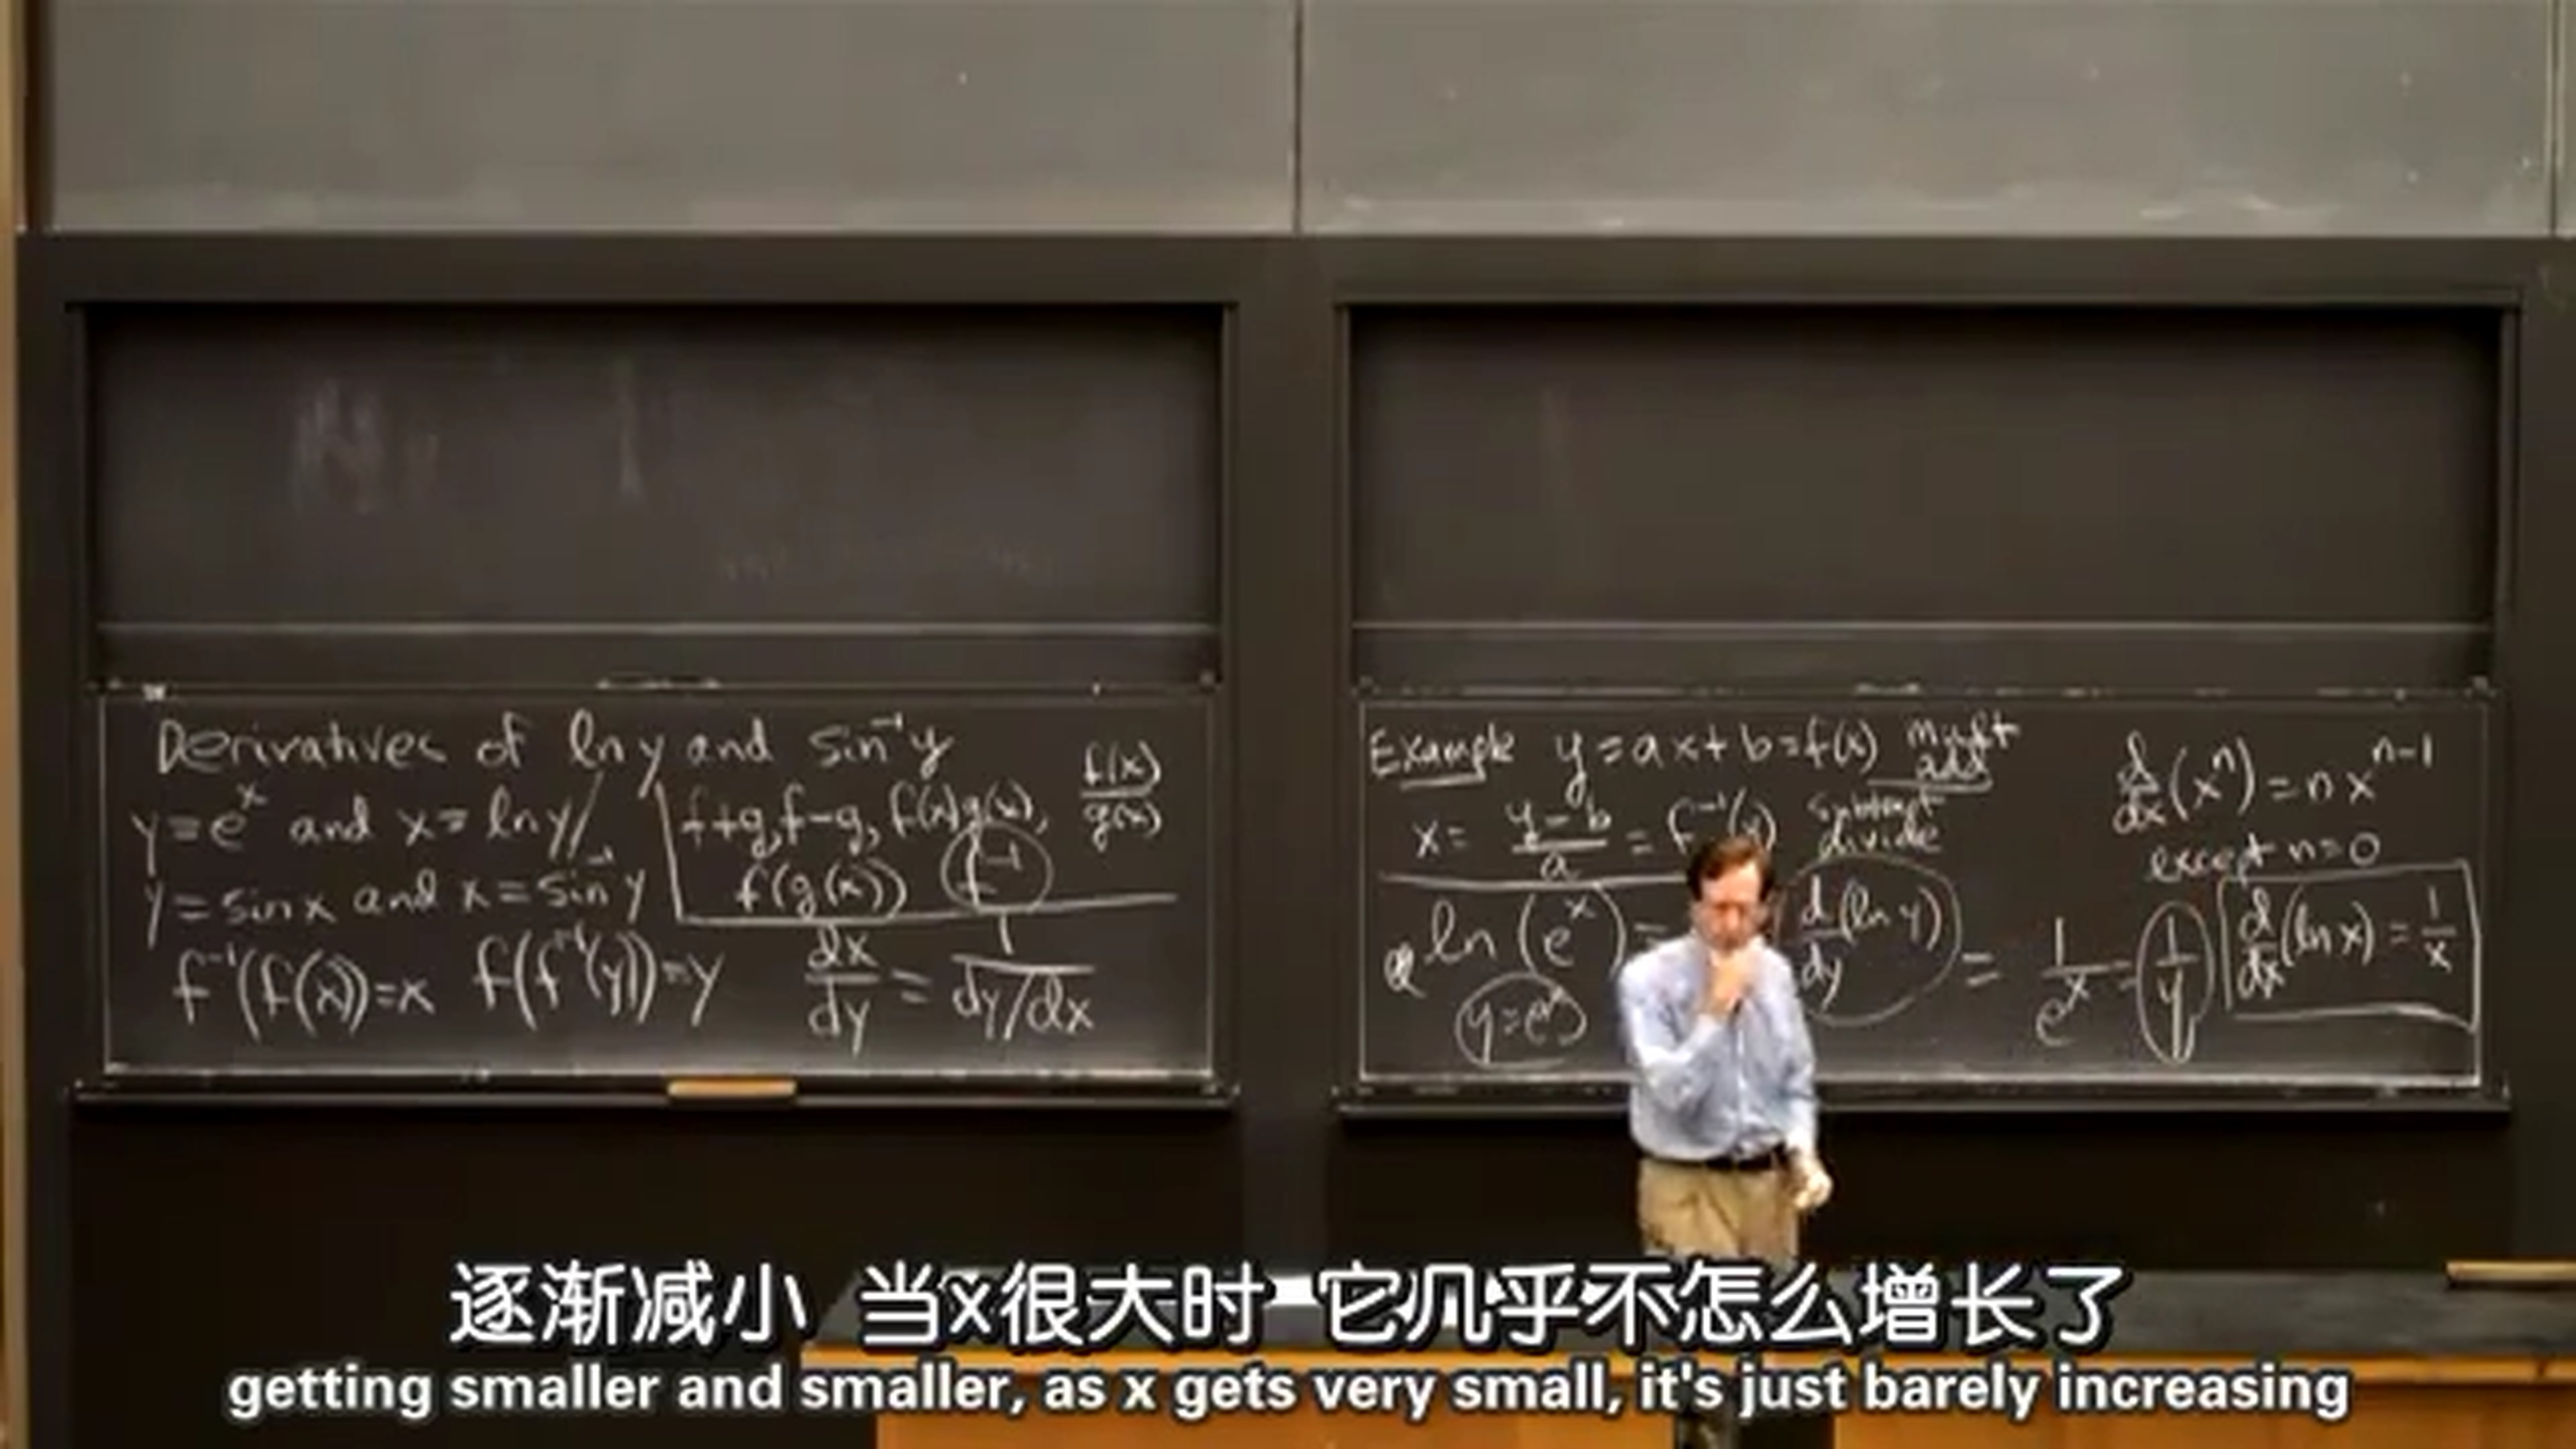 Derivatives of ln y and sin⁻¹y
y = eˣ and x = ln y
y = sin x and x = sin⁻¹y
f+g, f−g, f(x)g(x), f(x)/g(x)
f(g(x)) f⁻¹
f⁻¹(f(x)) = x f(f⁻¹(y)) = y dx/dy = 1/(dy/dx)
Example y = ax + b = f(x) mult
add
x = (y − b)/a = f⁻¹( ) subtract
divide
d/dx(xⁿ) = n xⁿ⁻¹
except n=0
ln(eˣ) = d/dy(ln y) = 1/eˣ = 1/y
y = eˣ
d/dx(ln x) = 1/x
逐渐减小 当x很大时 它几乎不怎么增长了
getting smaller and smaller, as x gets very small, it's just barely increasing